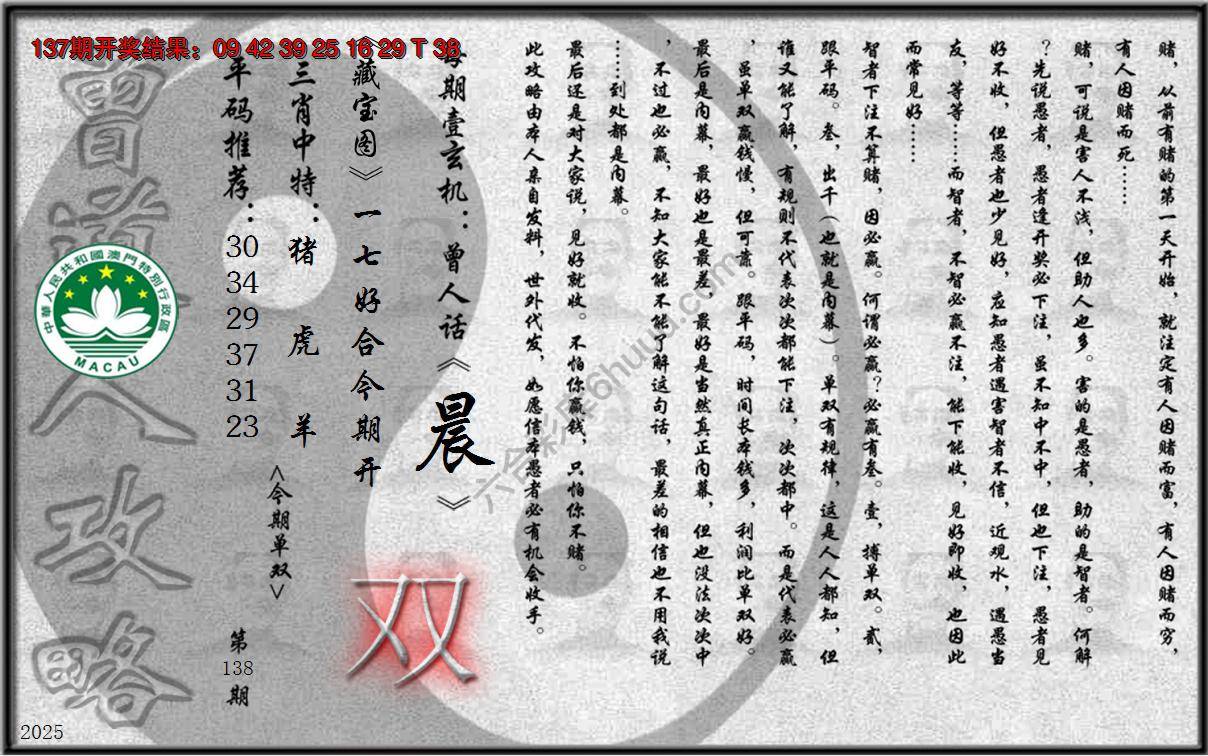 137期开奖结果：09 42 39 25 16 29 T 38
赌，从前有赌的第一天开始，就注定有人因赌而富，有人因赌而穷，
有人因赌而死……
赌，可说是害人不浅，但助人也多。害的是愚者，助的是智者。何解
？先说愚者，愚者逢开奖必下注，虽不知中不中，但也下注，愚者见
好不收，但愚者也少见好，应知愚者遇害智者不信，近观水，遇愚当
友，等等……而智者，不智必赢不注，能下能收，见好即收，也因此
而常见好……
智者下注不算赌，因必赢。何谓必赢？必赢有叁。壹，搏单双。贰，
跟平码。叁，出千（也就是内幕）。单双有规律，这是人人都知，但
谁又能了解，有规则不代表次次都能下注，次次都中。而是代表必赢
，虽单双赢钱慢，但可靠。跟平码，时间长本钱多，利润比单双好。
最后是内幕，最好也是最差，最好是当然真正内幕，但也没法次次中
，不过也必赢，不知大家能不能了解这句话，最差的相信也不用我说
……到处都是内幕。
最后还是对大家说，见好就收。不怕你赢钱，只怕你不赌。
此攻略由本人亲自发料，世外代发，如愿信本愚者必有机会收手。
每期壹玄机：曾人话《晨》
《藏宝图》一七好合今期开
三肖中特：猪 虎 羊
平码推荐：30 34 29 37 31 23
<今期单双>
双
第138期
曾道人攻略
中華人民共和國澳門特別行政區
MACAU
六合彩库6huuu.com
2025